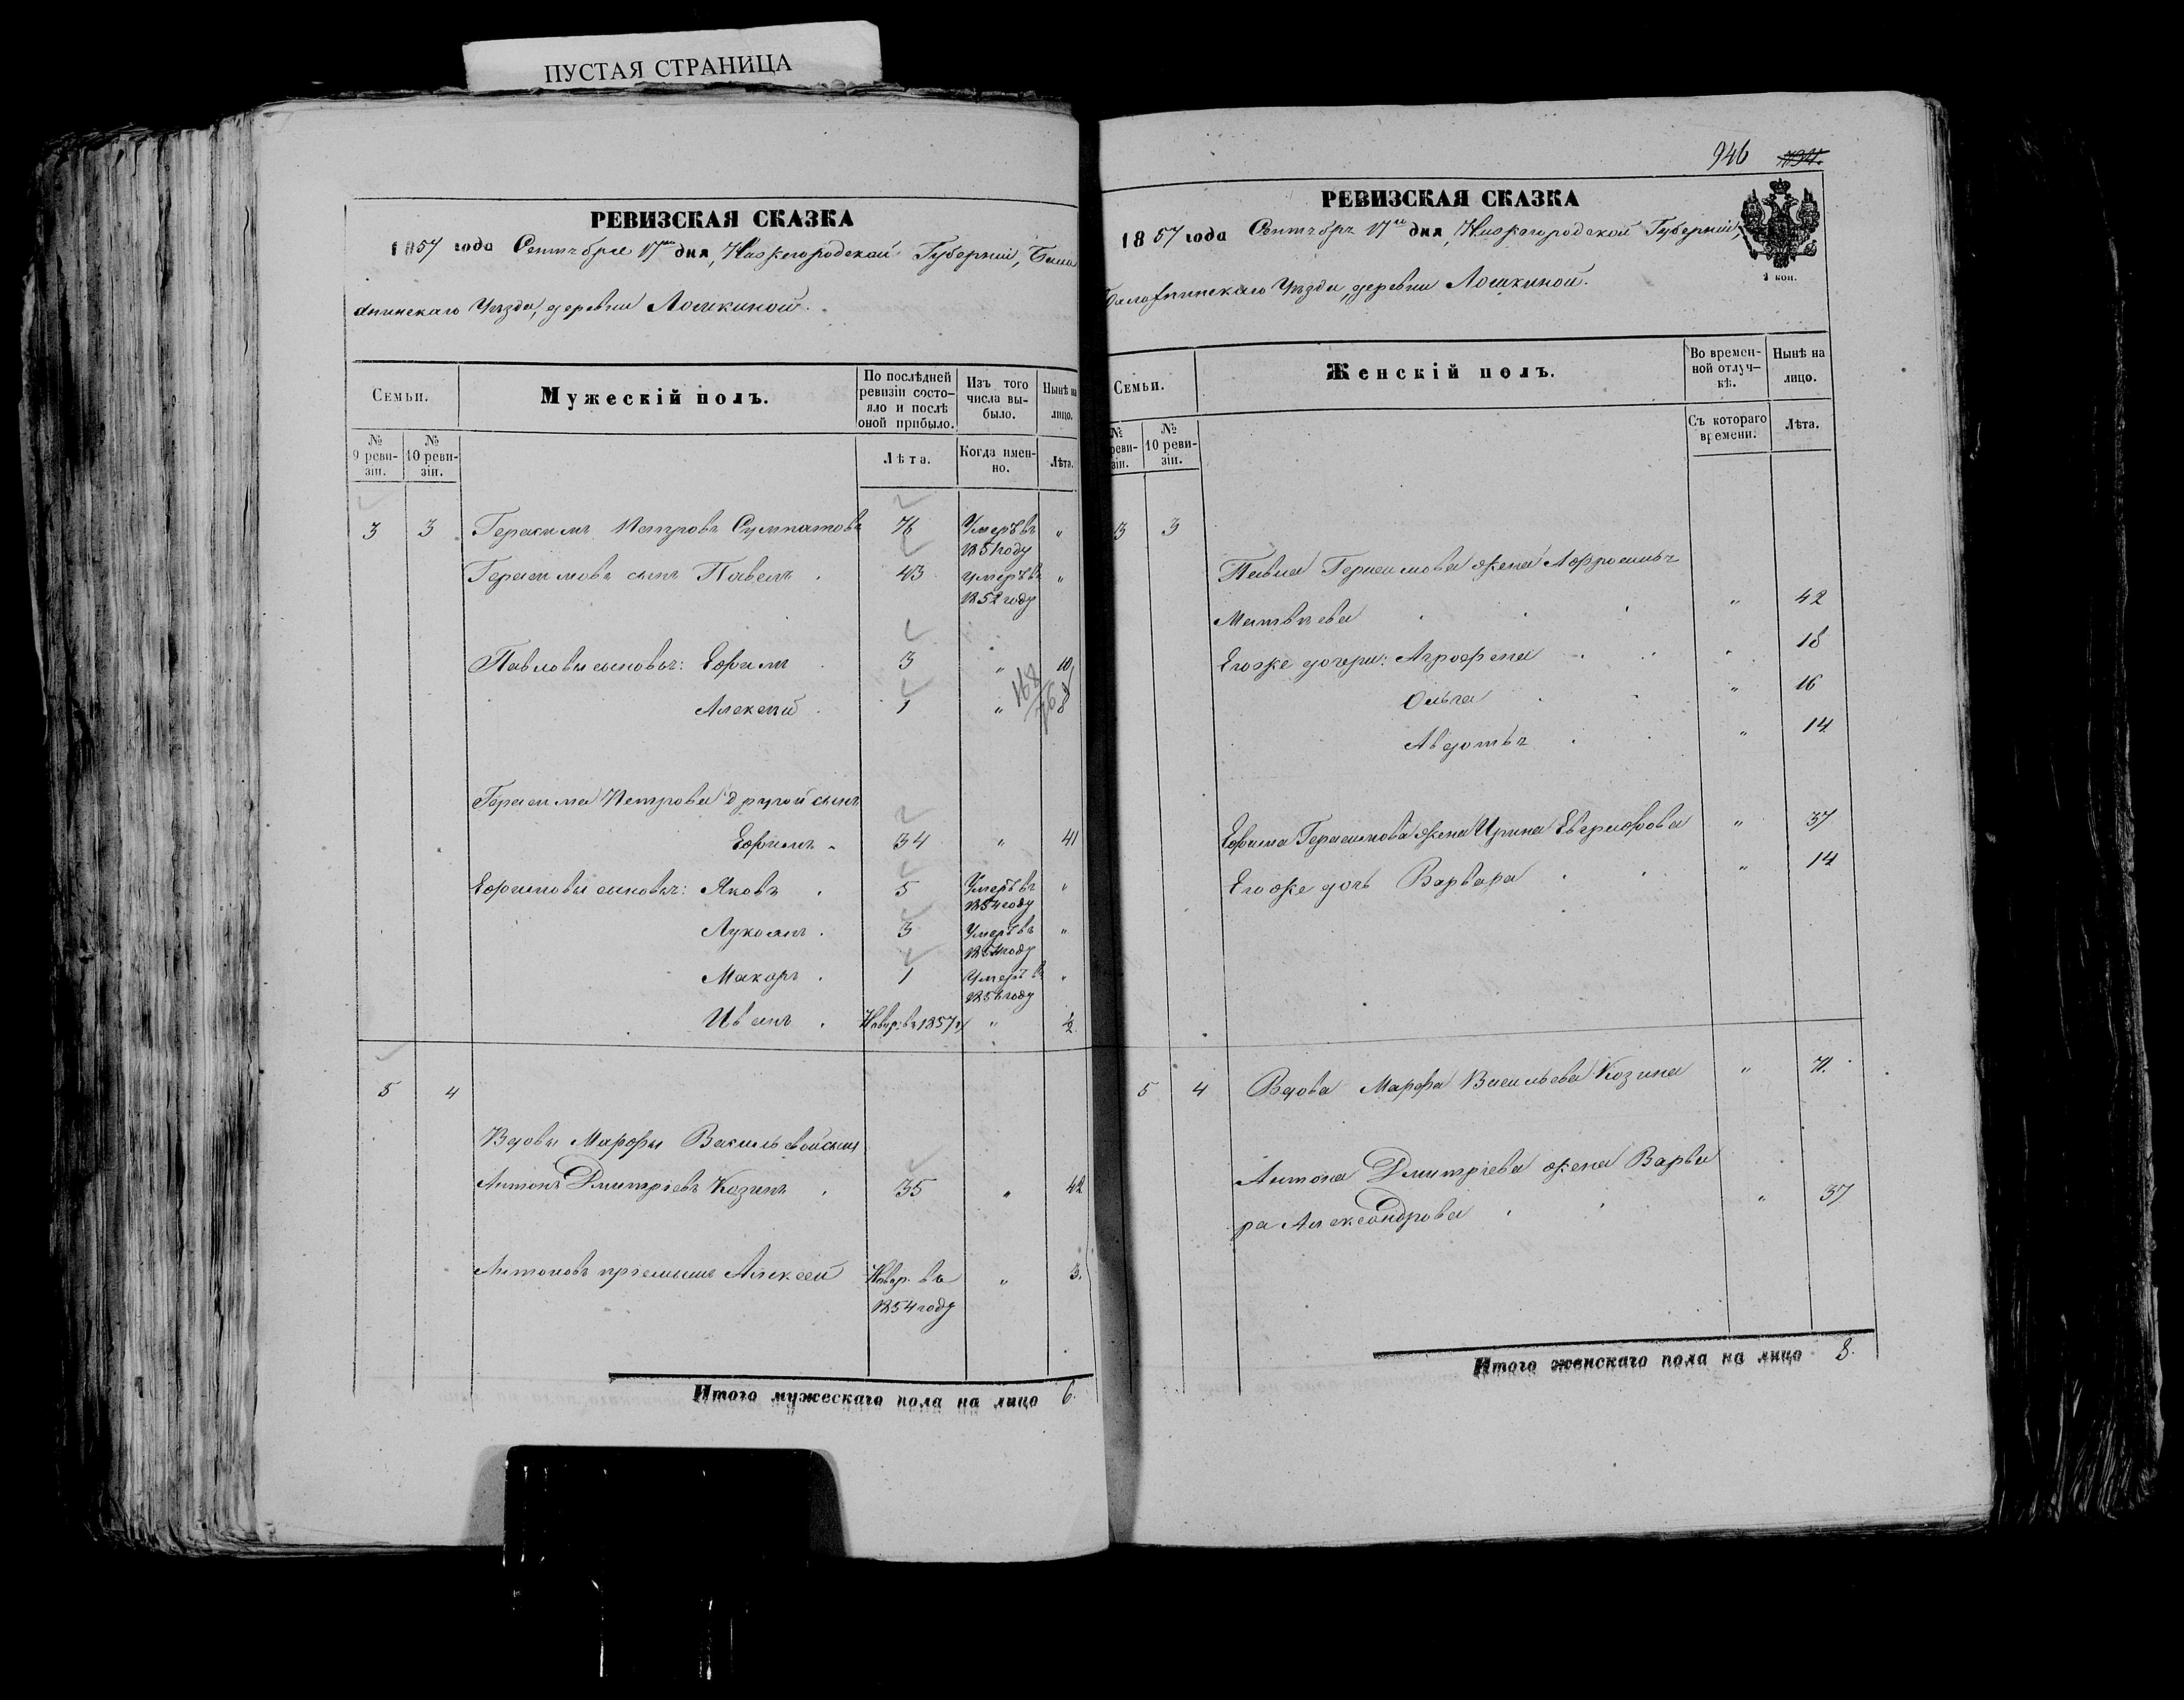 ПУСТАЯ СТРАНИЦА
РЕВИЗСКАЯ СКАЗКА
1857 года Сентября 17го дня, Нижегородской Губерніи, Бала
хнинскаго Уѣзда, деревни Ложкиной.
Семьи.
Мужескій полъ.
По послѣдней ревизіи состояло и послѣ оной прибыло.
Изъ того числа выбыло.
Нынѣ на лицо.
№ 9 ревизіи.
№ 10 ревизіи.
Лѣта.
Когда именно.
Лѣта.
3 3 Герасимъ Петровъ 76 Умеръ въ 1851 году "
Герасимовъ сынъ Павелъ . 43 умеръ въ 1852 году "
Павловы сыновья: Ефимъ . 3 " 10
Алексей . 1 " 8
168
Герасима Петрова другой сынъ
Ефимъ . 34 " 41
Ефимовы сыновья: Яковъ . 5 Умеръ въ 1854 году "
Лукоянъ . 3 Умеръ въ году "
Макаръ . 1 Умеръ въ году "
Иванъ . Новор. въ 1857 г. " ½
5 4
Вдовы Марфы Васильевой сынъ
Антонъ Дмитріевъ Козинъ . 35 " 42
Антоновъ пріемышъ Алексей Новор. въ 1854 году " 3.
Итого мужескаго пола на лицо 6.
946
РЕВИЗСКАЯ СКАЗКА
1857 года Сентября 17го дня, Нижегородской Губерніи,
2 коп.
Балахнинскаго Уѣзда, деревни Ложкиной.
Семьи.
Женскій полъ.
Во временной отлучкѣ.
Нынѣ на лицо.
№ ревизіи.
№ 10 ревизіи.
Съ котораго времени.
Лѣта.
3 3
Павла Герасимова жена Афросинья
Матвѣева " 42
Егоже дочери: Аграфена " 18
Ольга " 16
Авдотья " 14
Ефима Герасимова жена Ирина " 37
Егоже дочь Варвара " 14
5 4 Вдова Марфа Васильева Козина " 71.
Антона Дмитріева жена Варва
ра Александрова " 37
Итого женскаго пола на лицо 8.